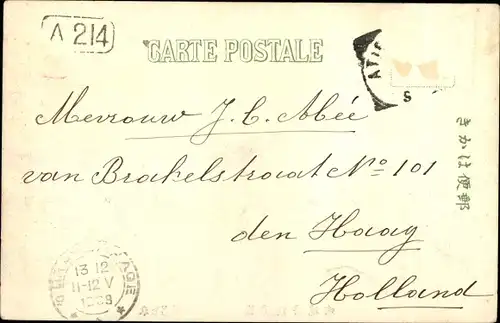 A 214
CARTE POSTALE
S
Mevrouw J. C. Abée
van Brakelstraat No 101
den Haag
Holland
きかは便郵
13 12
11-12 V